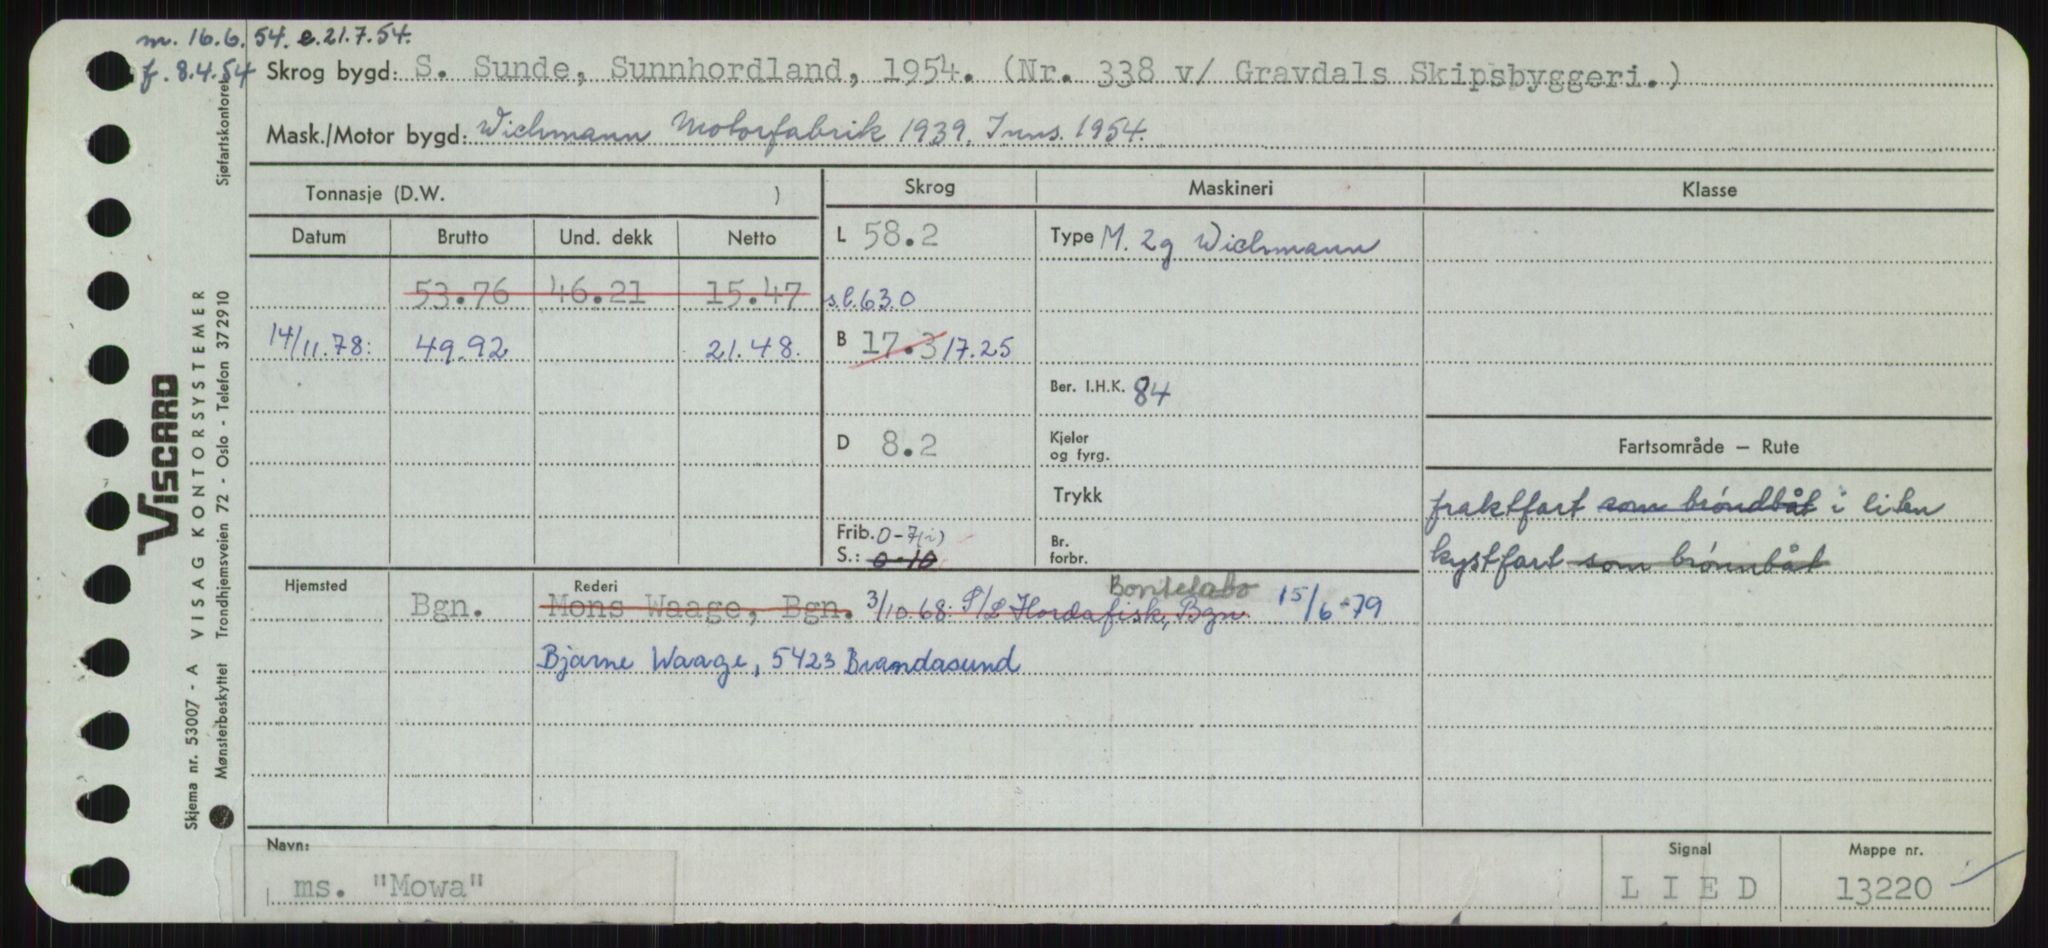 m. 16.6.54. e.21.7.54.
f. 8.4.54
Skrog bygd: S. Sunde, Sunnhordland, 1954. (Nr. 338 v/ Gravdals Skipsbyggeri.)
Mask./Motor bygd: Wichmann Motorfabrik 1939. Inns. 1954.
Tonnasje (D.W. )
Skrog
Maskineri
Klasse
Datum Brutto Und. dekk Netto
L 58.2
Type M. 2g Wichmann
53.76 46.21 15.47
s.l. 63.0
14/11.78. 49.92 21.48.
B 17.3 17.25
Ber. I.H.K. 84
D 8.2
Kjeler
og fyrg.
Fartsområde — Rute
Trykk
fraktfart som brøndbåt i liten
Frib. 0-7(i)
S.: 0-10
Br.
forbr.
kystfart som brønnbåt
Hjemsted
Rederi
Bontelabo
Bgn.
Mons Waage, Bgn. 3/10.68. P/L Hordafisk, Bgn. 15/6-79
Bjarne Waage, 5423 Brandasund
Navn:
ms. "Mowa"
Signal
L I E D
Mappe nr.
13220
Viscard
VISAG KONTORSYSTEMER
Sjøfartskontoret
Skjema nr. 53007 - A
Mønsterbeskyttet Trondhjemsveien 72 - Oslo - Telefon 372910